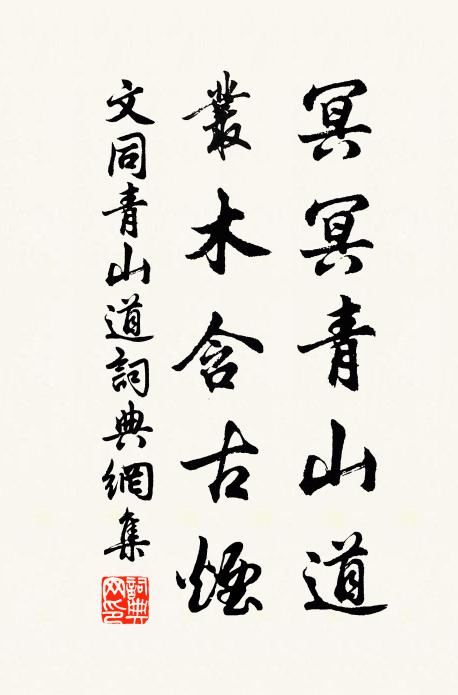 冥冥青山道
叢木含古煙
文同青山道詞典網集
詞典網印